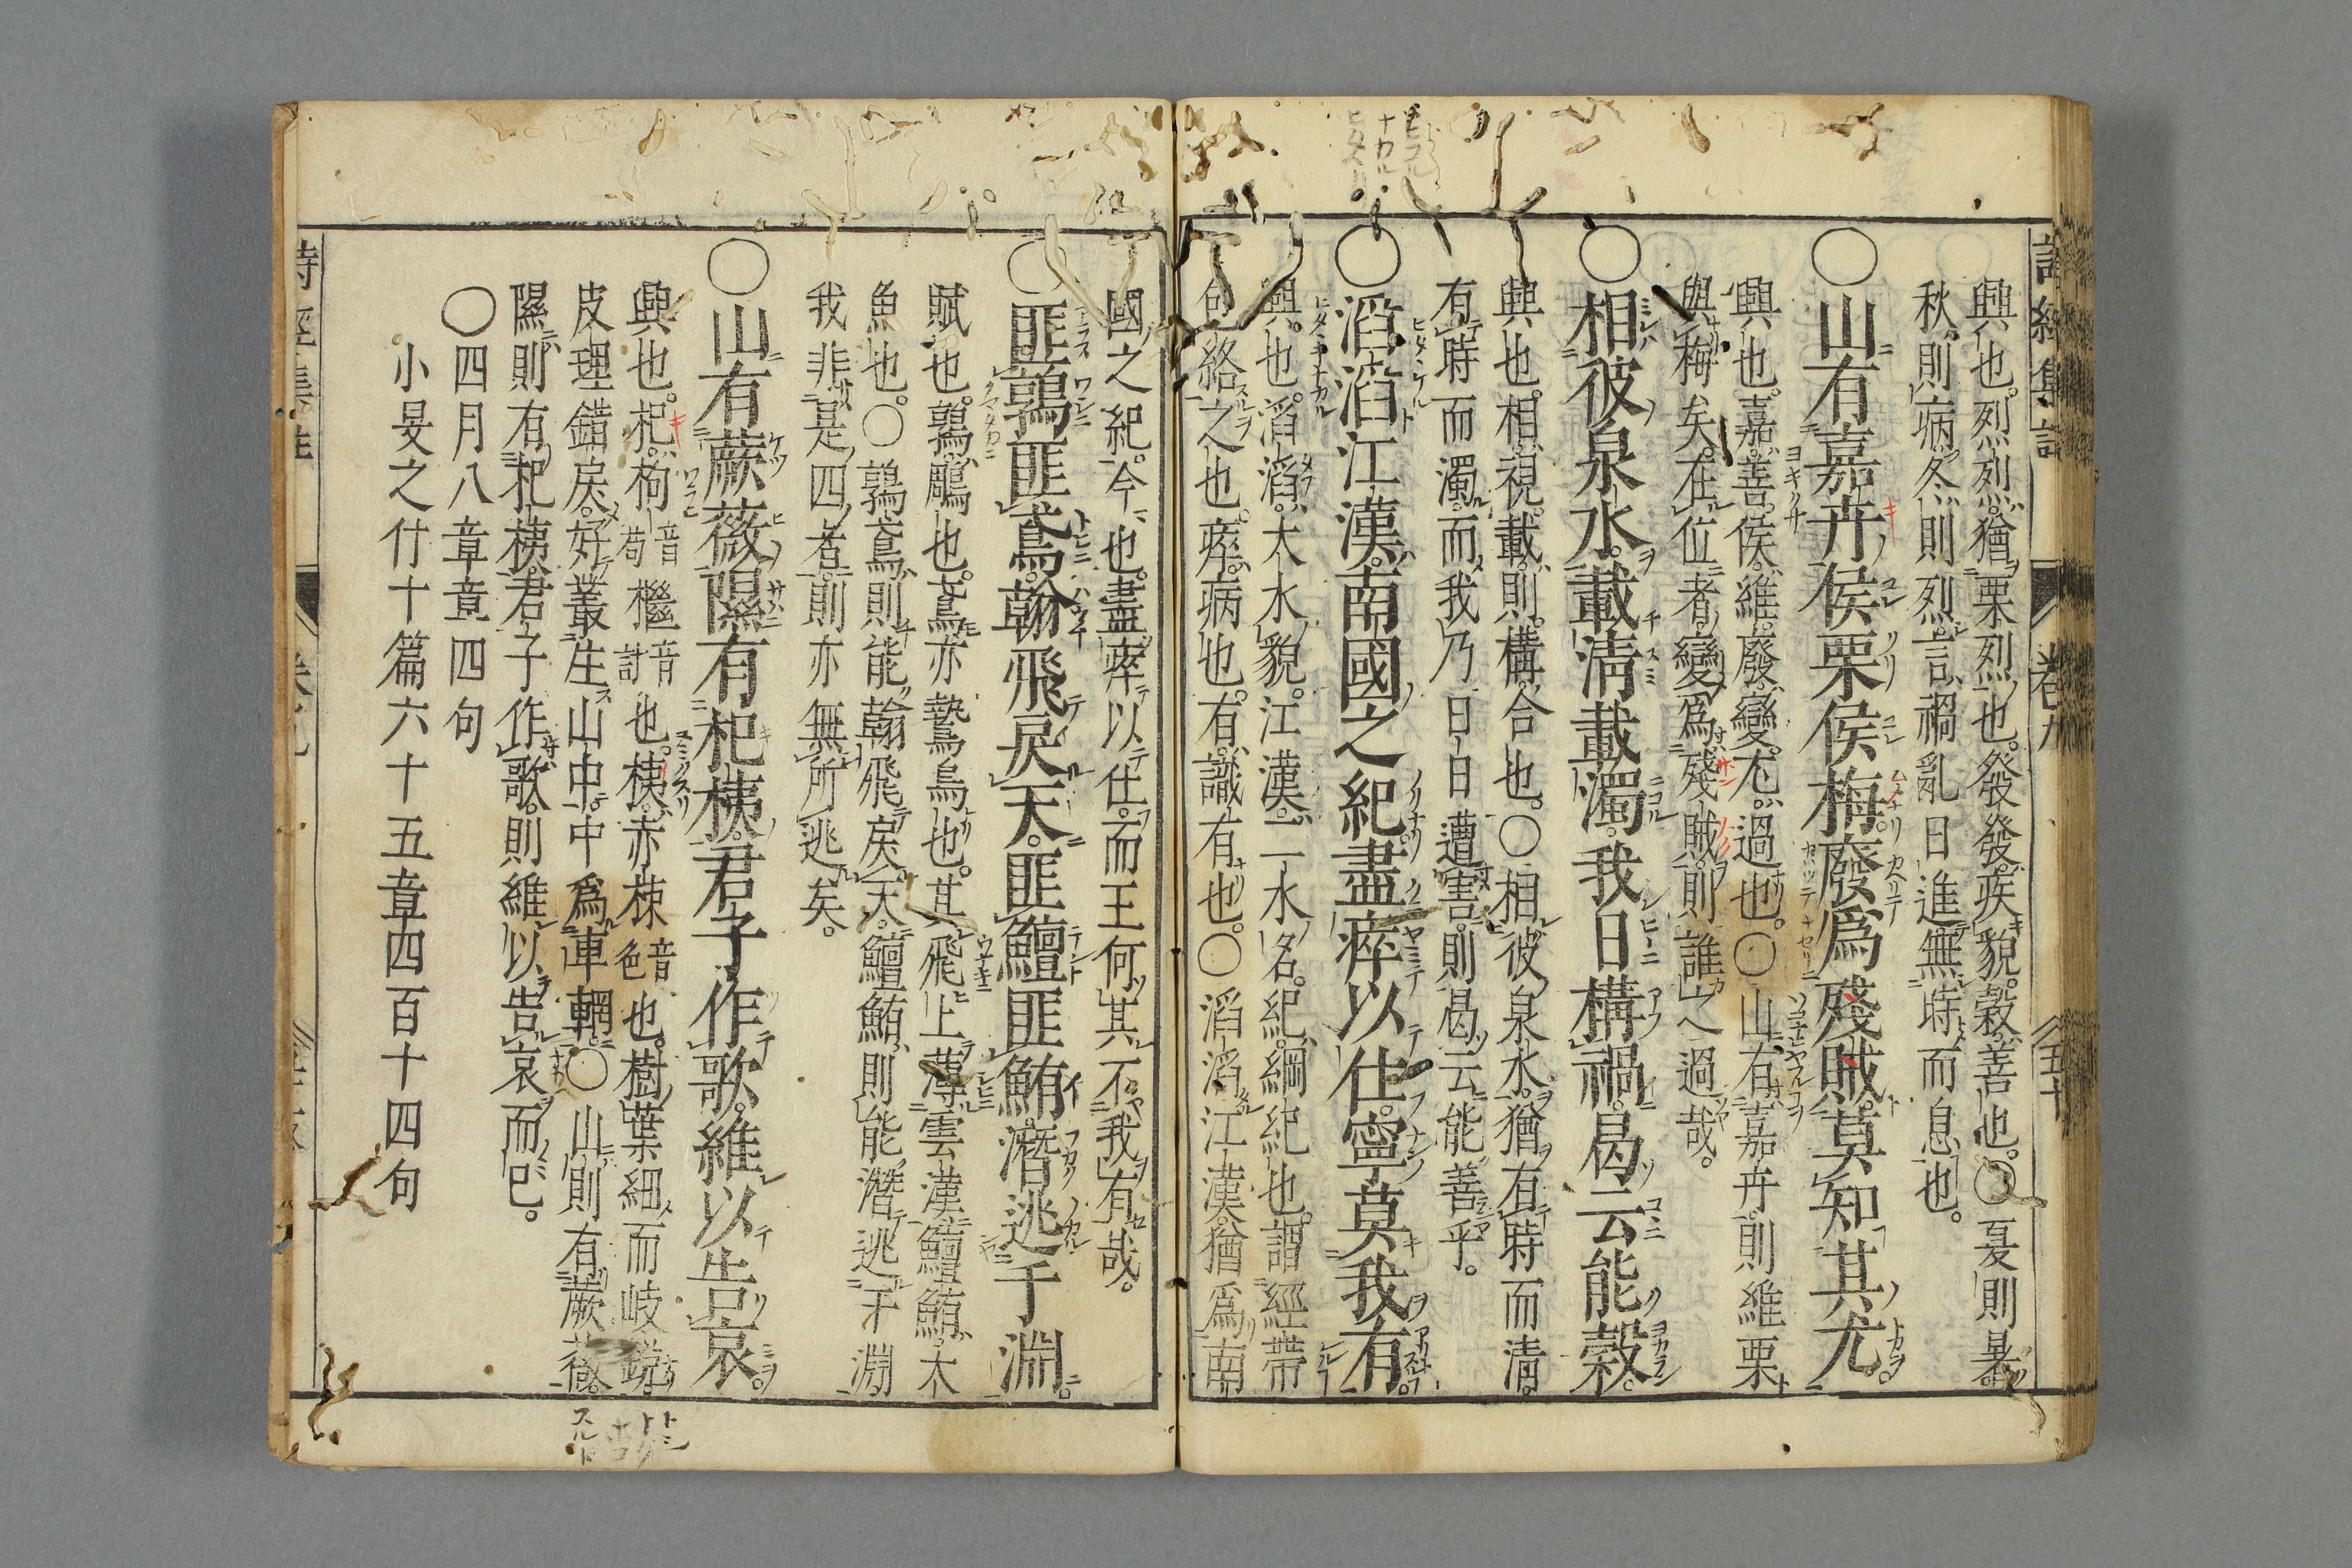 興也。烈烈。猶栗烈也。發發疾貌。穀善也。○夏則暑。
秋則病。冬則烈。言禍亂日進。無時而息也。
○山有嘉卉。侯栗侯梅。廢爲殘賊。莫知其尤。
興也。嘉善。侯維。廢變。尤過也。○山有嘉卉。則維栗
與梅矣。在位者。變爲殘賊。則誰之過哉。
○相彼泉水。載淸載濁。我日構禍。曷云能穀。
興也。相視。載則。構合也。○相彼泉水。猶有時而淸。
有時而濁。而我乃日日遭害。則曷云能善乎。
○滔滔江漢。南國之紀。盡瘁以仕。寧莫我有。
興也。滔滔。大水貌。江漢。二水名。紀。綱紀也。謂經帶
包絡之也。瘁。病也。有。識有也。○滔滔江漢。猶爲南
國之紀。今也盡瘁以仕。而王何其不我有哉。
○匪鶉匪鳶。翰飛戾天。匪鱣匪鮪。潛逃于淵。
賦也。鶉。鵰也。鳶亦鷙鳥也。其飛上薄雲漢。鱣鮪。大
魚也。○鶉鳶。則能翰飛戾天。鱣鮪。則能潛逃于淵。
我非是四者。則亦無所逃矣。
○山有蕨薇。隰有杞桋。君子作歌。維以告哀。
興也。杞。枸音苟檵音計也。桋。赤栜音色也。樹葉細而岐銳。
皮理錯戾。好叢生山中。中爲車輞。○山則有蕨薇。
隰則有杞桋。君子作歌。則維以告哀而已。
○四月八章章四句
小旻之什十篇六十五章四百十四句